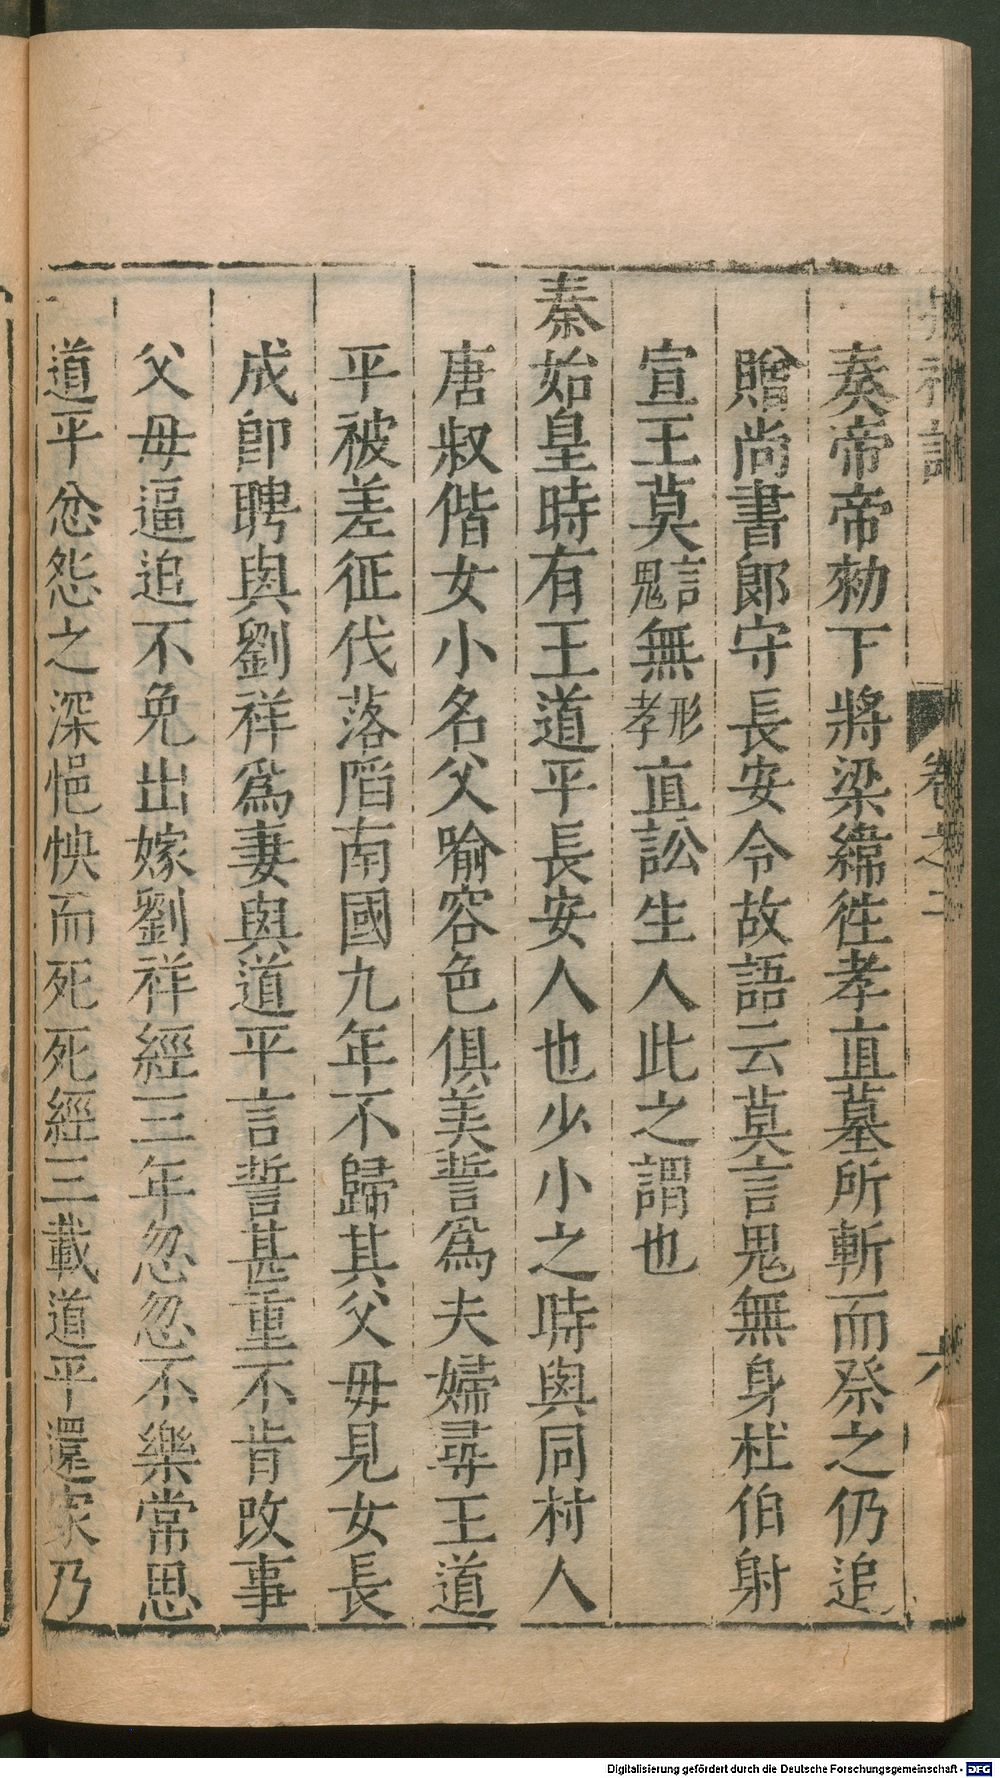 搜神記 卷之二 六
奏帝帝勑下將梁緯徃孝直墓所斬而祭之仍追
贈尚書郎守長安令故語云莫言鬼無身杜伯射
宣王莫言鬼無形孝直訟生人此之謂也
秦始皇時有王道平長安人也少小之時與同村人
唐叔偕女小名父喻容色俱美誓爲夫婦尋王道
平被差征伐落陷南國九年不歸其父毋見女長
成卽聘與劉祥爲妻與道平言誓甚重不肯改事
父毋逼迫不免出嫁劉祥經三年忽忽不樂常思
道平忿怨之深悒怏而死死經三載道平還家乃
Digitalisierung gefördert durch die Deutsche Forschungsgemeinschaft - DFG